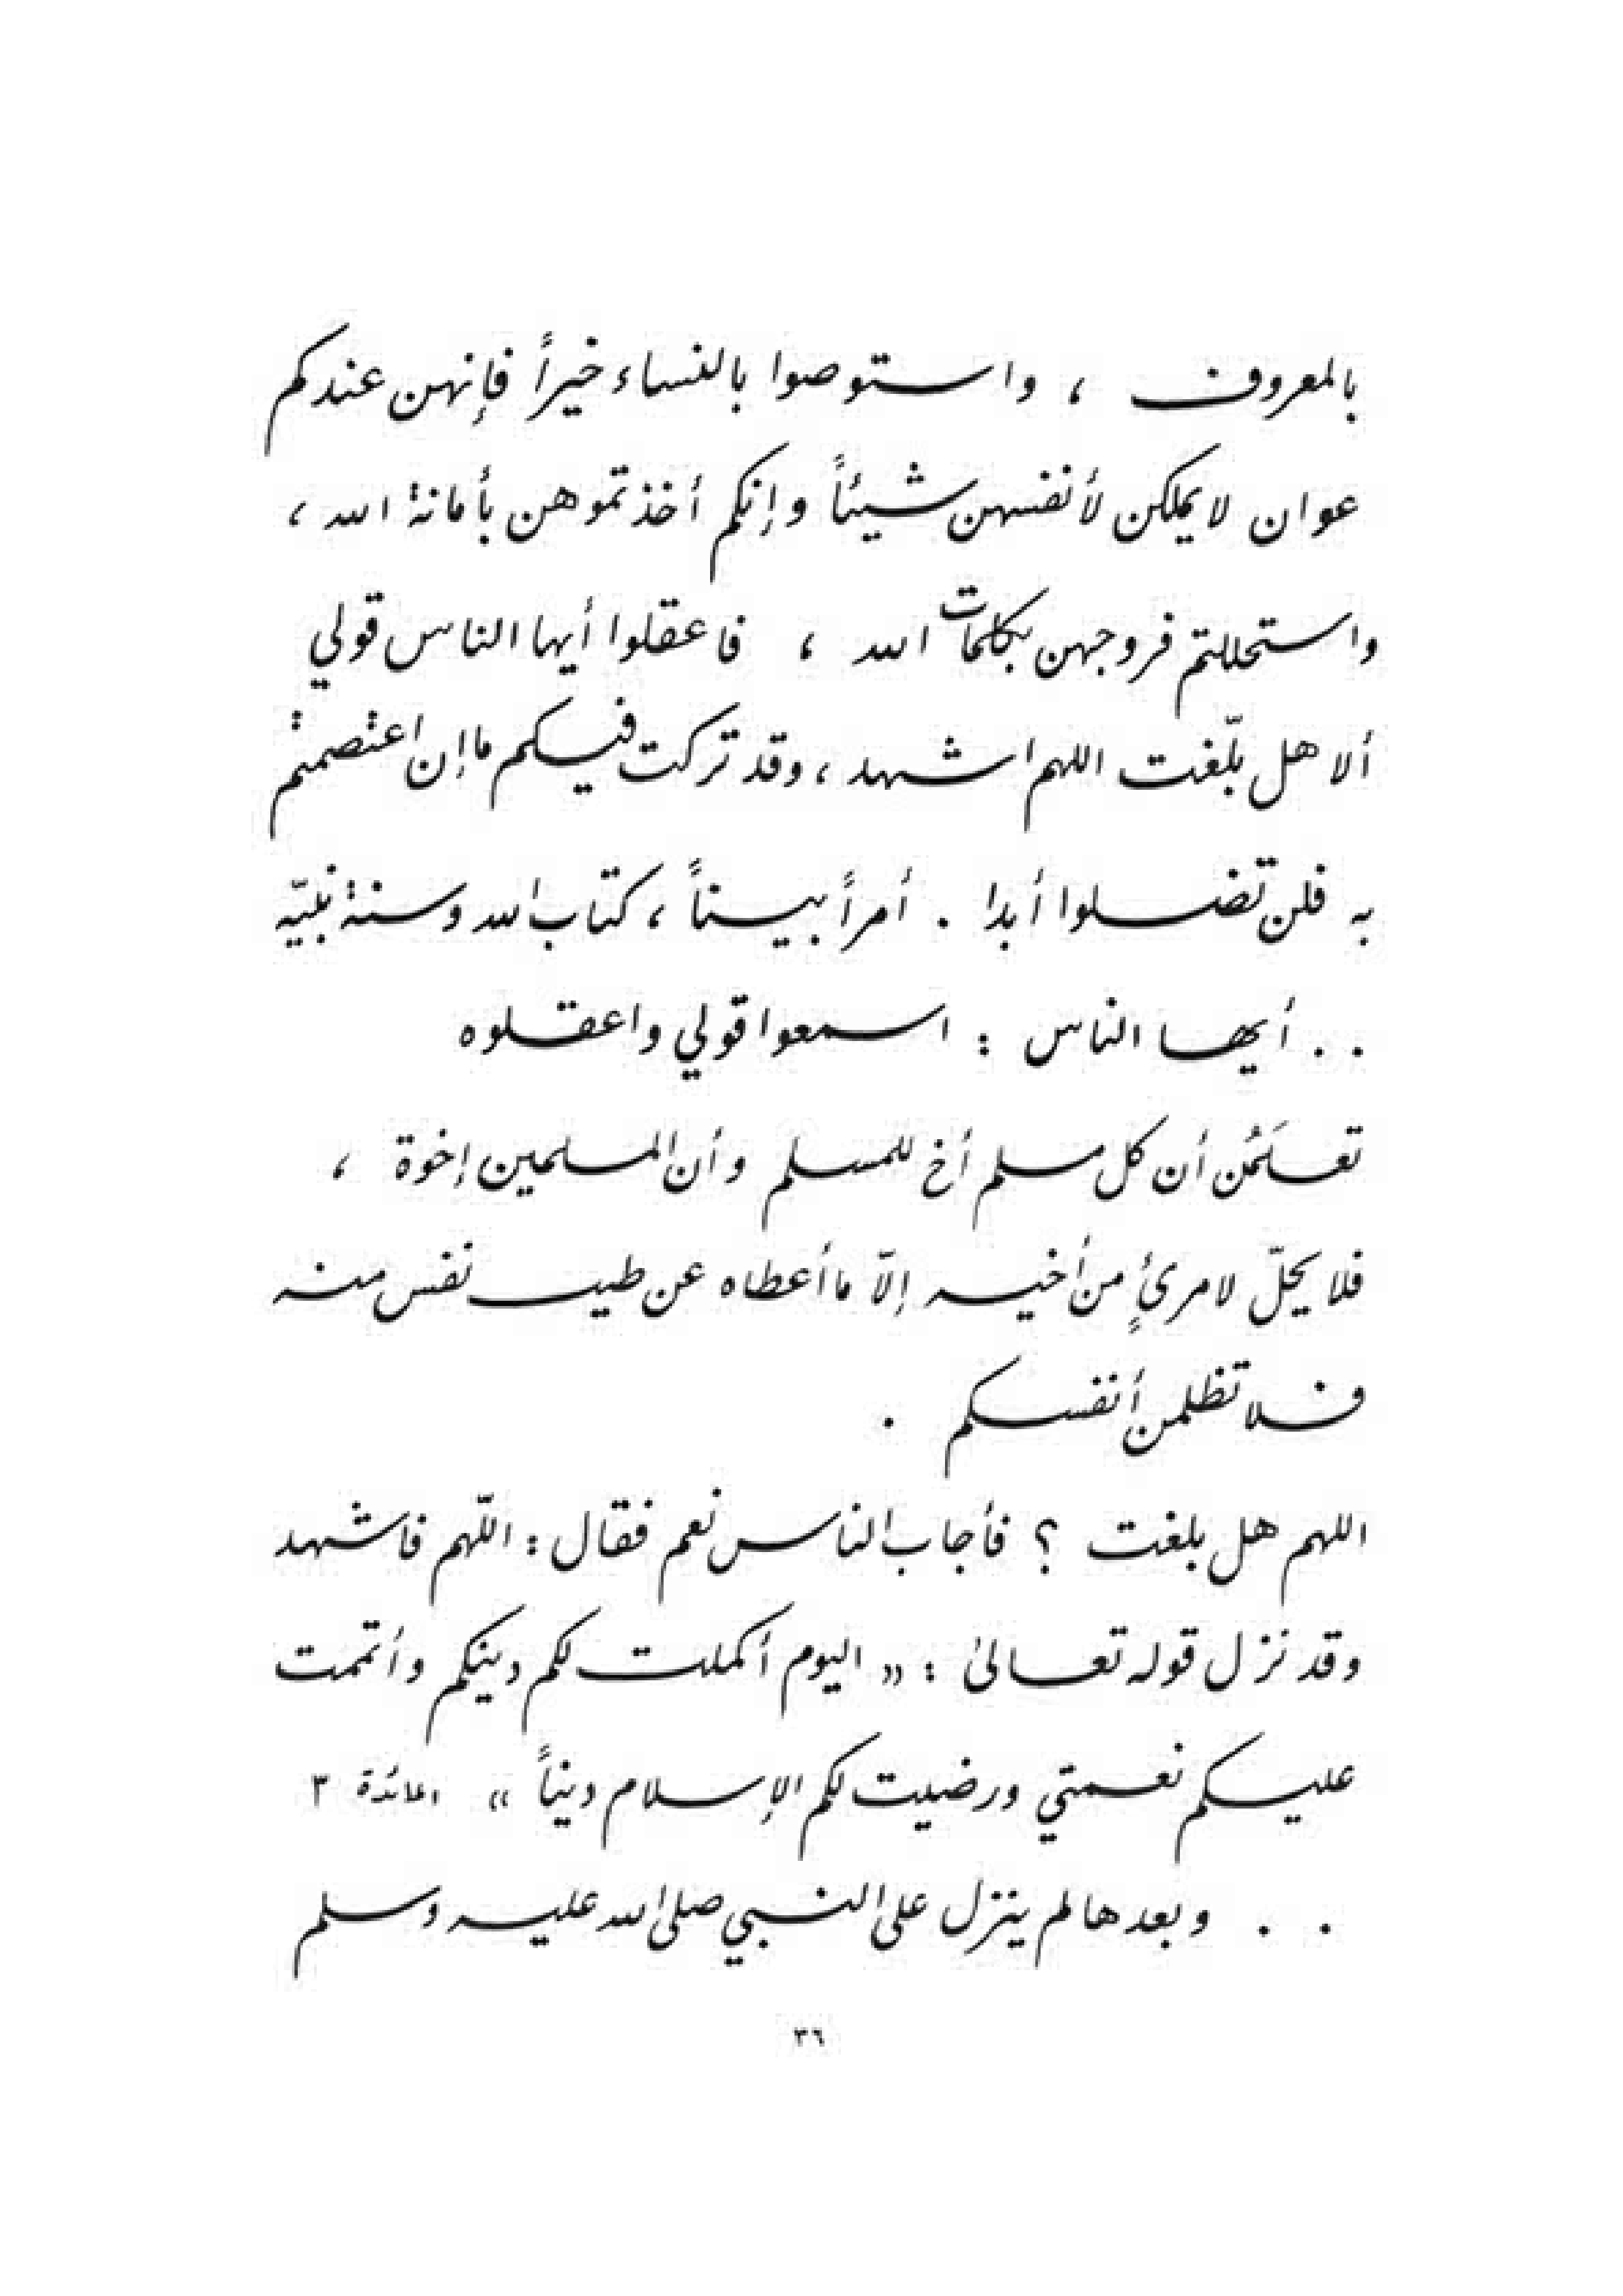 بالمعروف ، واستوصوا بالنساء خيراً فإنهن عندكم
عوان لا يملكن لأنفسهن شيئاً وإنكم أخذتموهن بأمانة الله ،
واستحللتم فروجهن بكلمات الله ، فاعقلوا أيها الناس قولي
ألا هل بلّغت اللهم اشهد ، وقد تركت فيكم ما إن اعتصمتم
به فلن تضلوا أبدا . أمراً بيناً ، كتاب الله وسنة نبيّه
. . أيها الناس : اسمعوا قولي واعقلوه
تعلَمُن أن كل مسلم أخ للمسلم وأن المسلمين إخوة ،
فلا يحلّ لامرئٍ من أخيه إلاّ ما أعطاه عن طيب نفس منه
فلا تظلمن أنفسكم .
اللهم هل بلغت ؟ فأجاب الناس نعم فقال : اللّهم فاشهد
وقد نزل قوله تعالىٰ : « اليوم أكملت لكم دينكم وأتممت
عليكم نعمتي ورضيت لكم الإسلام ديناً » المائدة ٣
. . وبعدها لم ينزل على النبي صلى الله عليه وسلم
٣٦